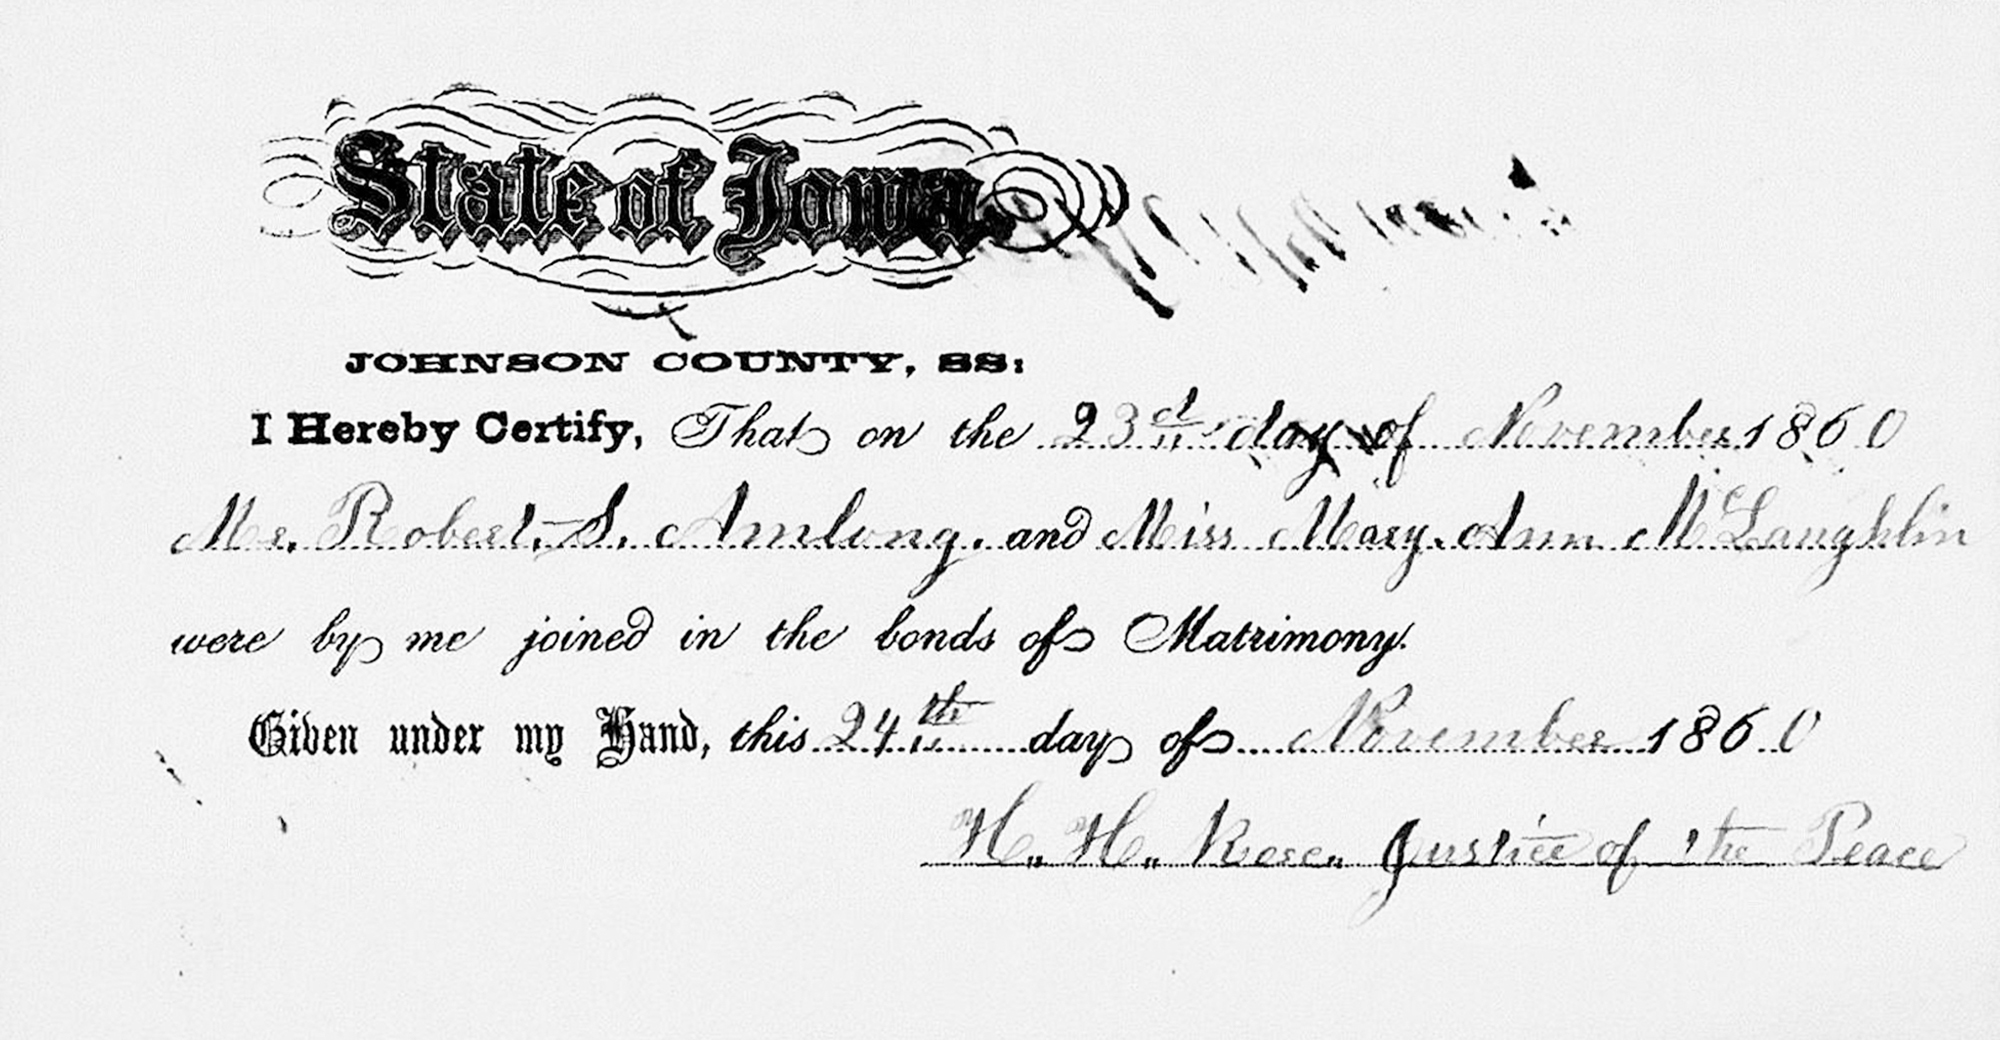 State of Iowa.
JOHNSON COUNTY, SS:
I Hereby Certify, That on the 23d day of November 1860
Mr. Robert. S. Amlong. and Miss Mary. Ann McLaughlin
were by me joined in the bonds of Matrimony.
Given under my Hand, this 24th day of November 1860
H. H. Rose. Justice of the Peace